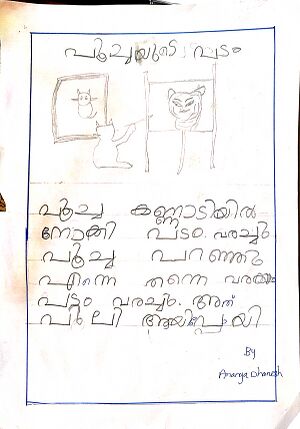 പൂച്ചയുടെ പടം
പൂച്ച കണ്ണാടിയിൽ
നോക്കി പടം വരച്ചു
പൂച്ച പറഞ്ഞു
എന്നെ തന്നെ വരക്കും
പട്ടം വരച്ചും. അത്
പുലി ആയിപ്പോയി
By
Ananya Dhanesh